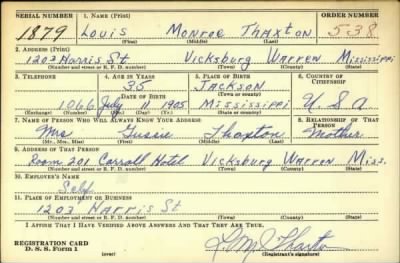 SERIAL NUMBER 1. NAME (Print) ORDER NUMBER
1879 Louis Monroe Thaxton 538
(First) (Middle) (Last)
2. ADDRESS (Print)
1203 Harris St. Vicksburg Warren Mississippi
(Number and street or R. F. D. number) (Town) (County) (State)
3. TELEPHONE 4. AGE IN YEARS 5. PLACE OF BIRTH 6. COUNTRY OF CITIZENSHIP
35 Jackson
DATE OF BIRTH (Town or county)
1066 July 11 1905 Mississippi U.S.A
(Exchange) (Number) (Mo.) (Day) (Yr.) (State or country)
7. NAME OF PERSON WHO WILL ALWAYS KNOW YOUR ADDRESS 8. RELATIONSHIP OF THAT PERSON
Mrs Gussie Thaxton Mother
(Mr., Mrs., Miss) (First) (Middle) (Last)
9. ADDRESS OF THAT PERSON
Room 201 Carroll Hotel Vicksburg Warren Miss.
(Number and street or R. F. D. number) (Town) (County) (State)
10. EMPLOYER'S NAME
Self
11. PLACE OF EMPLOYMENT OR BUSINESS
1203 Harris St
(Number and street or R. F. D. number) (Town) (County) (State)
I AFFIRM THAT I HAVE VERIFIED ABOVE ANSWERS AND THAT THEY ARE TRUE.
REGISTRATION CARD
D. S. S. Form 1 (over) (Registrant's signature)